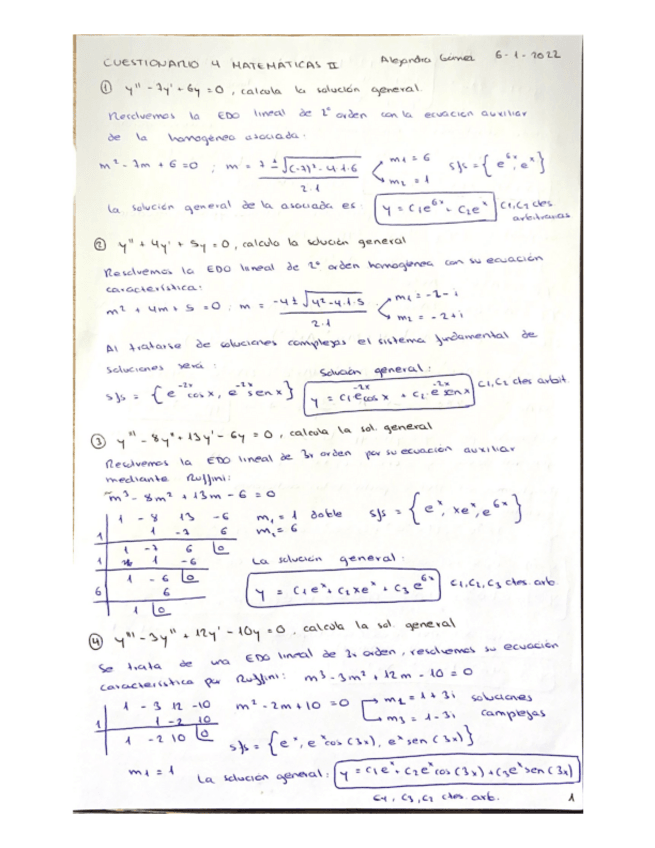 CUESTIONARIO 4 MATEMÁTICAS II Alejandra Gómez 6-1-2022
① y'' - 7y' + 6y = 0, calcula la solución general.
Resolvemos la EDO lineal de 2º orden con la ecuación auxiliar
de la homogénea asociada:
m² - 7m + 6 = 0 ; m = 7 ± √(-7)² - 4·1·6 / 2·1 m₁ = 6 m₂ = 1 sfs = { e^6x, e^x }
La solución general de la asociada es: y = C₁e^6x + C₂e^x C1, C2 ctes arbitrarias
② y'' + 4y' + 5y = 0, calcula la solución general
Resolvemos la EDO lineal de 2º orden homogénea con su ecuación
característica:
m² + 4m + 5 = 0 ; m = -4 ± √4² - 4·1·5 / 2·1 m₁ = -2 - i m₂ = -2 + i
Al tratarse de soluciones complejas el sistema fundamental de
soluciones será: Solución general:
sfs = { e^-2x cos x, e^-2x sen x } y = C₁ e^-2x cos x + C₂ e^-2x sen x C1, C2 ctes arbit.
③ y''' - 8y'' + 13y' - 6y = 0, calcula la sol. general
Resolvemos la EDO lineal de 3r orden por su ecuación auxiliar
mediante Ruffini:
m³ - 8m² + 13m - 6 = 0
1 -8 13 -6 m₁ = 1 doble sfs = { e^x, xe^x, e^6x }
1 1 -7 6 m₂ = 6
1 -7 6 0
1 1 -6 La solución general:
1 -6 0 y = C₁e^x + C₂xe^x + C₃e^6x C1, C2, C3 ctes arb.
6 6
1 0
④ y''' - 3y'' + 12y' - 10y = 0, calcula la sol. general
Se trata de una EDO lineal de 3r orden, resolvemos su ecuación
característica por Ruffini: m³ - 3m² + 12m - 10 = 0
1 -3 12 -10 m² - 2m + 10 = 0 m₂ = 1 + 3i soluciones
1 1 -2 10 m₃ = 1 - 3i complejas
1 -2 10 0 sfs = { e^x, e^x cos(3x), e^x sen(3x) }
m₁ = 1 La solución general: y = C₁e^x + C₂e^x cos(3x) + C₃e^x sen(3x)
ctes. arb. 1